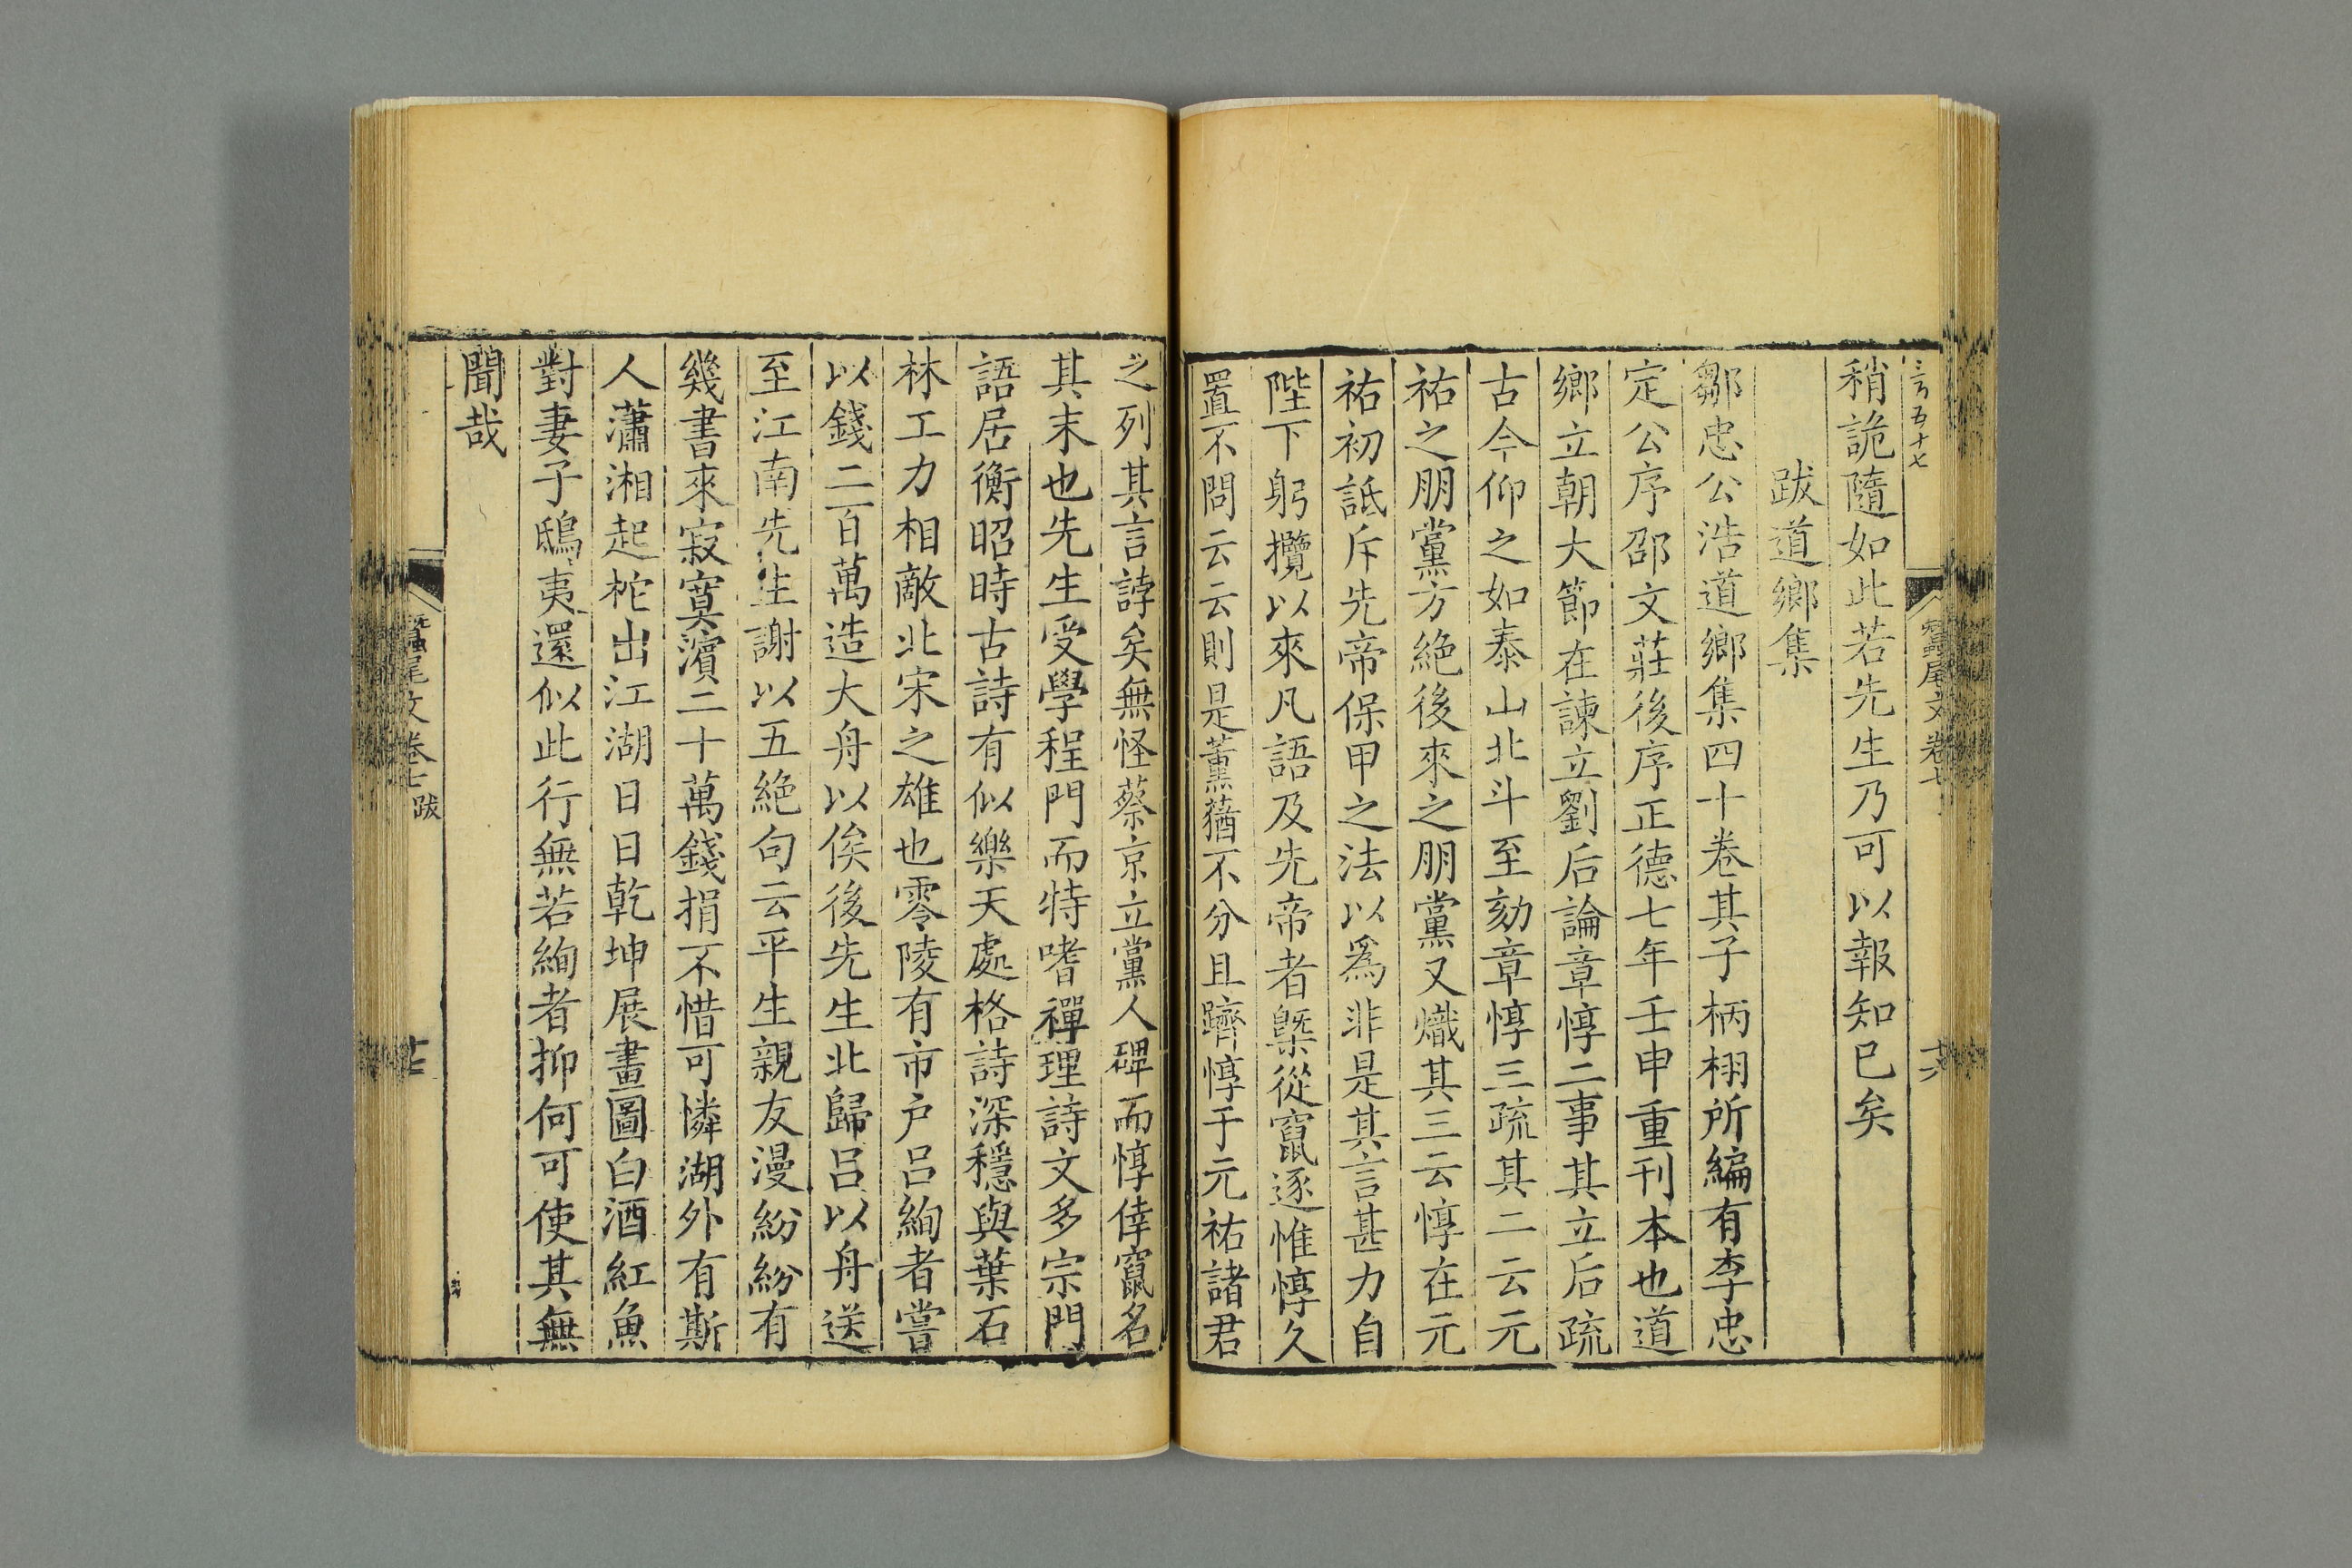 稍詭隨如此若先生乃可以報知已矣
跋道鄉集
鄒忠公浩道鄉集四十卷其子柄栩所編有李忠
定公序邵文莊後序正德七年壬申重刊本也道
鄉立朝大節在諫立劉后論章惇二事其立后疏
古今仰之如泰山北斗至劾章惇三疏其二云元
祐之朋黨方絕後來之朋黨又熾其三云惇在元
祐初詆斥先帝保甲之法以爲非是其言甚力自
陛下躬攬以來凡語及先帝者槩從竄逐惟惇久
置不問云云則是薰蕕不分且躋惇于元祐諸君
之列其言誖矣無怪蔡京立黨人碑而惇倖竄名
其末也先生受學程門而特嗜禪理詩文多宗門
語居衡昭時古詩有似樂天處格詩深穩與葉石
林工力相敵北宋之雄也零陵有市户呂絢者嘗
以錢二百萬造大舟以俟後先生北歸呂以舟送
至江南先生謝以五絕句云平生親友漫紛紛有
幾書來寂寞濵二十萬錢捐不惜可憐湖外有斯
人瀟湘起柁出江湖日日乾坤展畫圖白酒紅魚
對妻子鴟夷還似此行無若絢者抑何可使其無
聞哉
蠶尾文卷七 跋